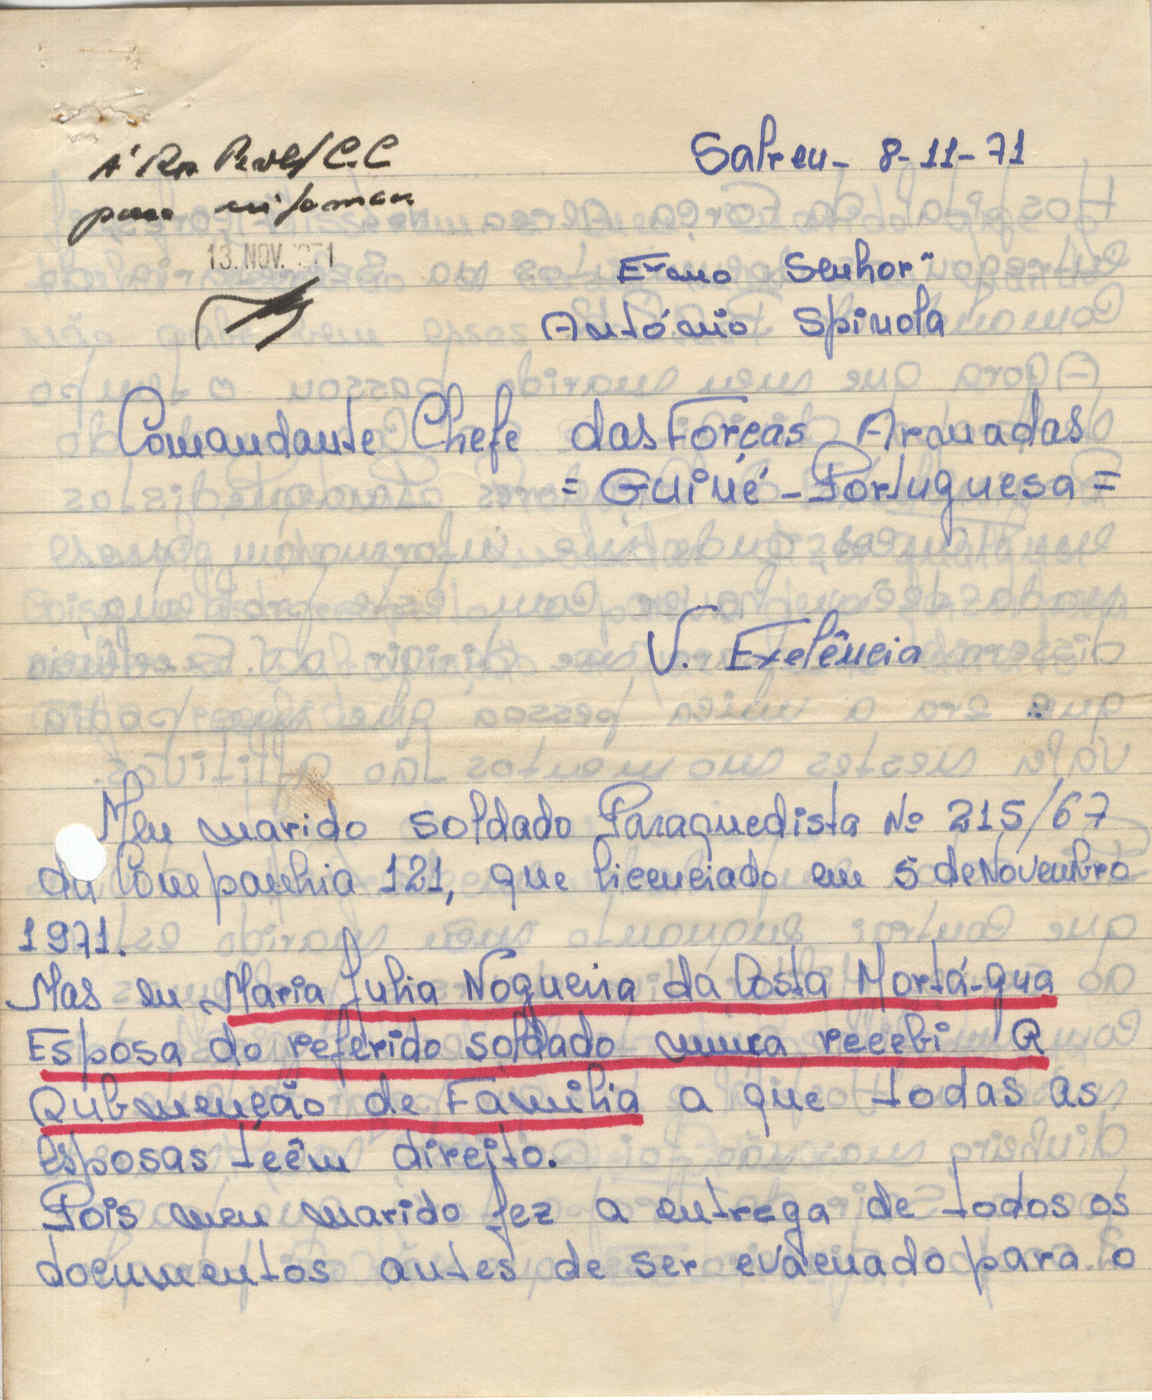 À Rep
para informar
13. NOV. 1971
Salreu - 8-11-71
Exmo Senhor
António Spinola
Comandante Chefe das Forças Armadas
= Guiné - Portuguesa =
V. Exelência
Meu marido soldado Paraquedista Nº 215/67
da Companhia 121, que licenciado em 5 de Novembro
1971.
Mas eu Maria Julia Nogueira da Costa Mortá-gua
Esposa do referido soldado nunca recebi a
Submenção de Familia a que todas as
esposas teêm direito.
Pois meu marido fez a entrega de todos os
documentos antes de ser evacuado para o